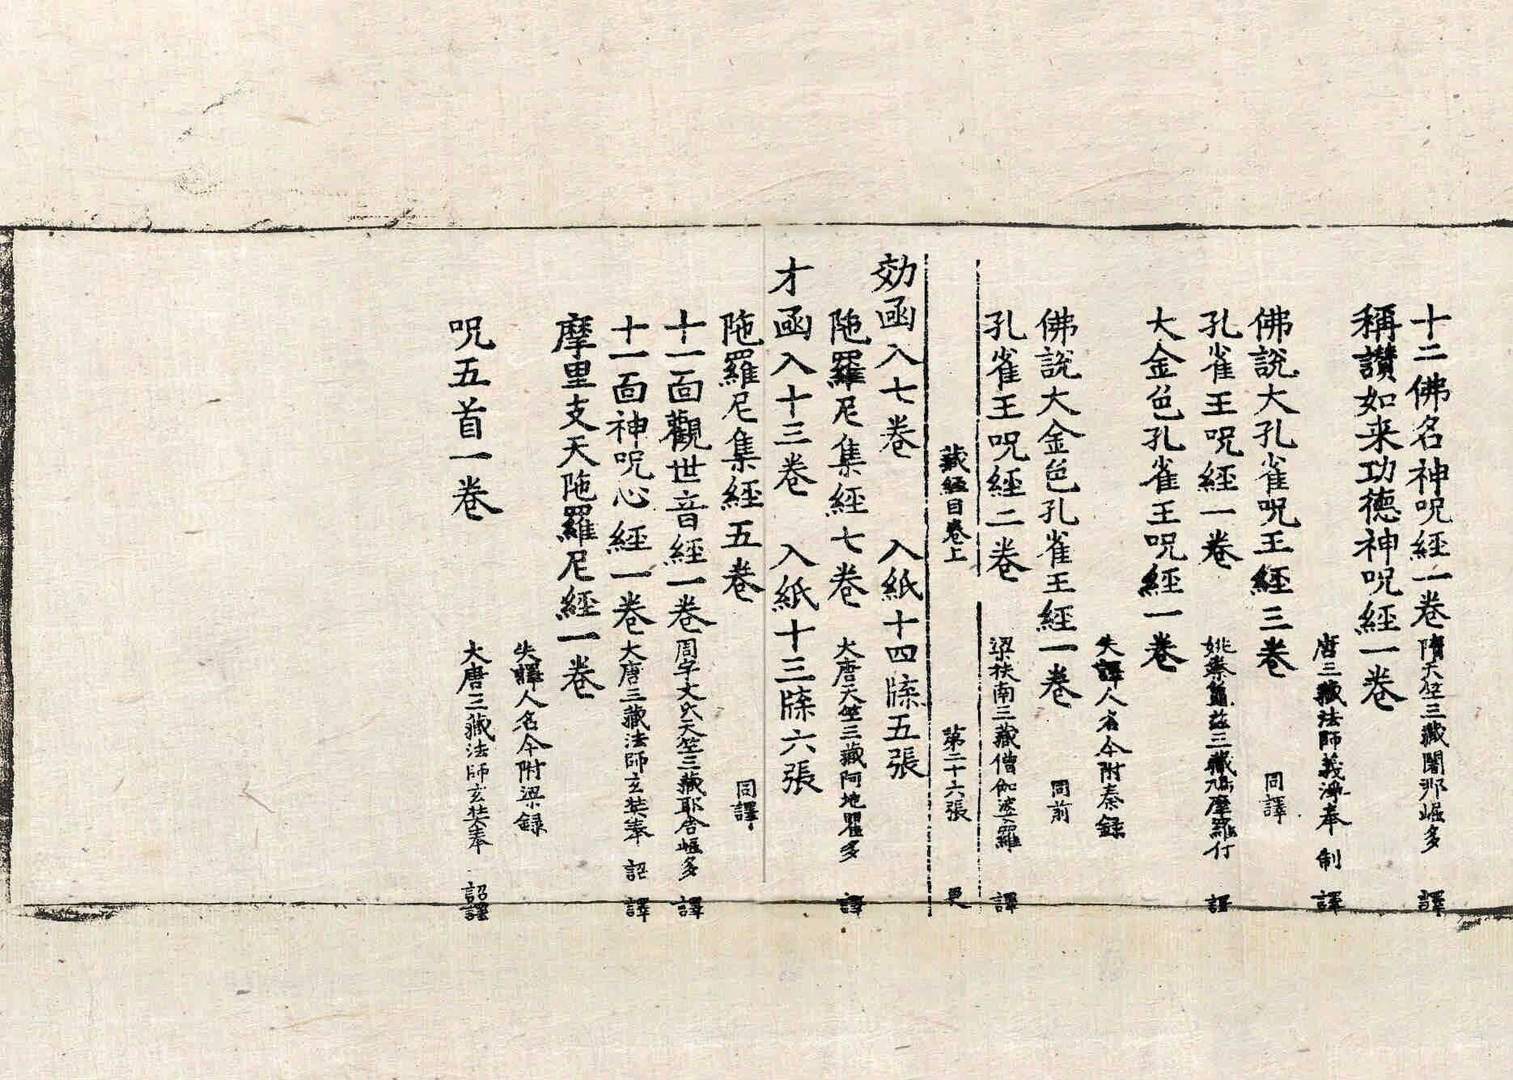 十二佛名神呪經一卷 隋天竺三藏闍那崛多 譯
稱讃如来功德神呪經一卷
唐三藏法師義淨奉 制 譯
佛說大孔雀呪王經三卷 同譯
孔雀王呪經一卷 姚秦龜茲三藏鳩摩羅什 譯
大金色孔雀王呪經一卷
失譯人名今附秦録
佛說大金色孔雀王經一卷 同前
孔雀王呪經二卷 梁扶南三藏僧伽婆羅 譯
藏經目卷上 第二十六張 更
効函入七卷 入紙十四牒五張
陁羅尼集經七卷 大唐天竺三藏阿地瞿多 譯
才函入十三卷 入紙十三牒六張
陁羅尼集經五卷 同譯
十一面觀世音經一卷 周宇文氏天竺三藏耶舍崛多 譯
十一面神呪心經一卷 大唐三藏法師玄奘奉 詔 譯
摩里支天陁羅尼經一卷
失譯人名今附梁録
呪五首一卷 大唐三藏法師玄奘奉 詔譯